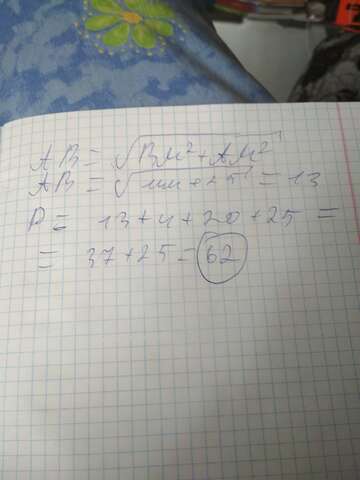 AB = √(BM² + AM²)
AB = √(144 + 25) = 13
P = 13 + 4 + 20 + 25 =
= 37 + 25 = 62